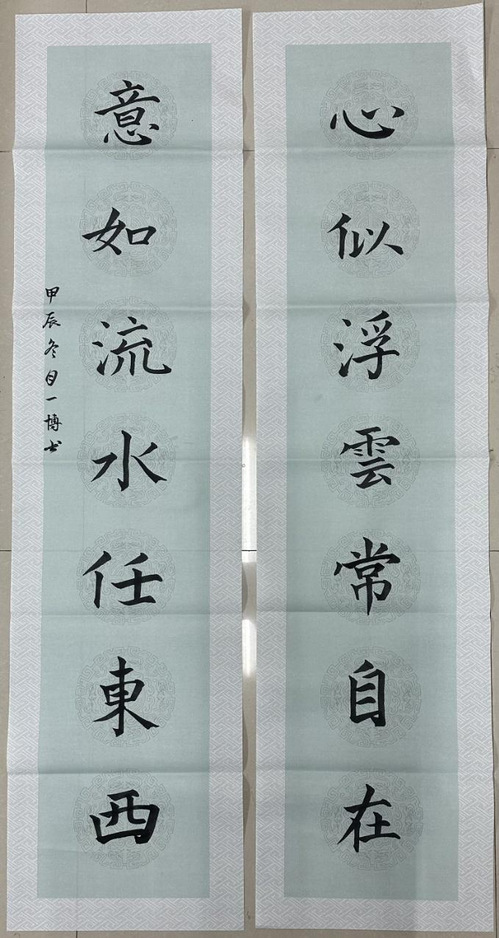 心似浮雲常自在
意如流水任東西
甲辰冬日一博书